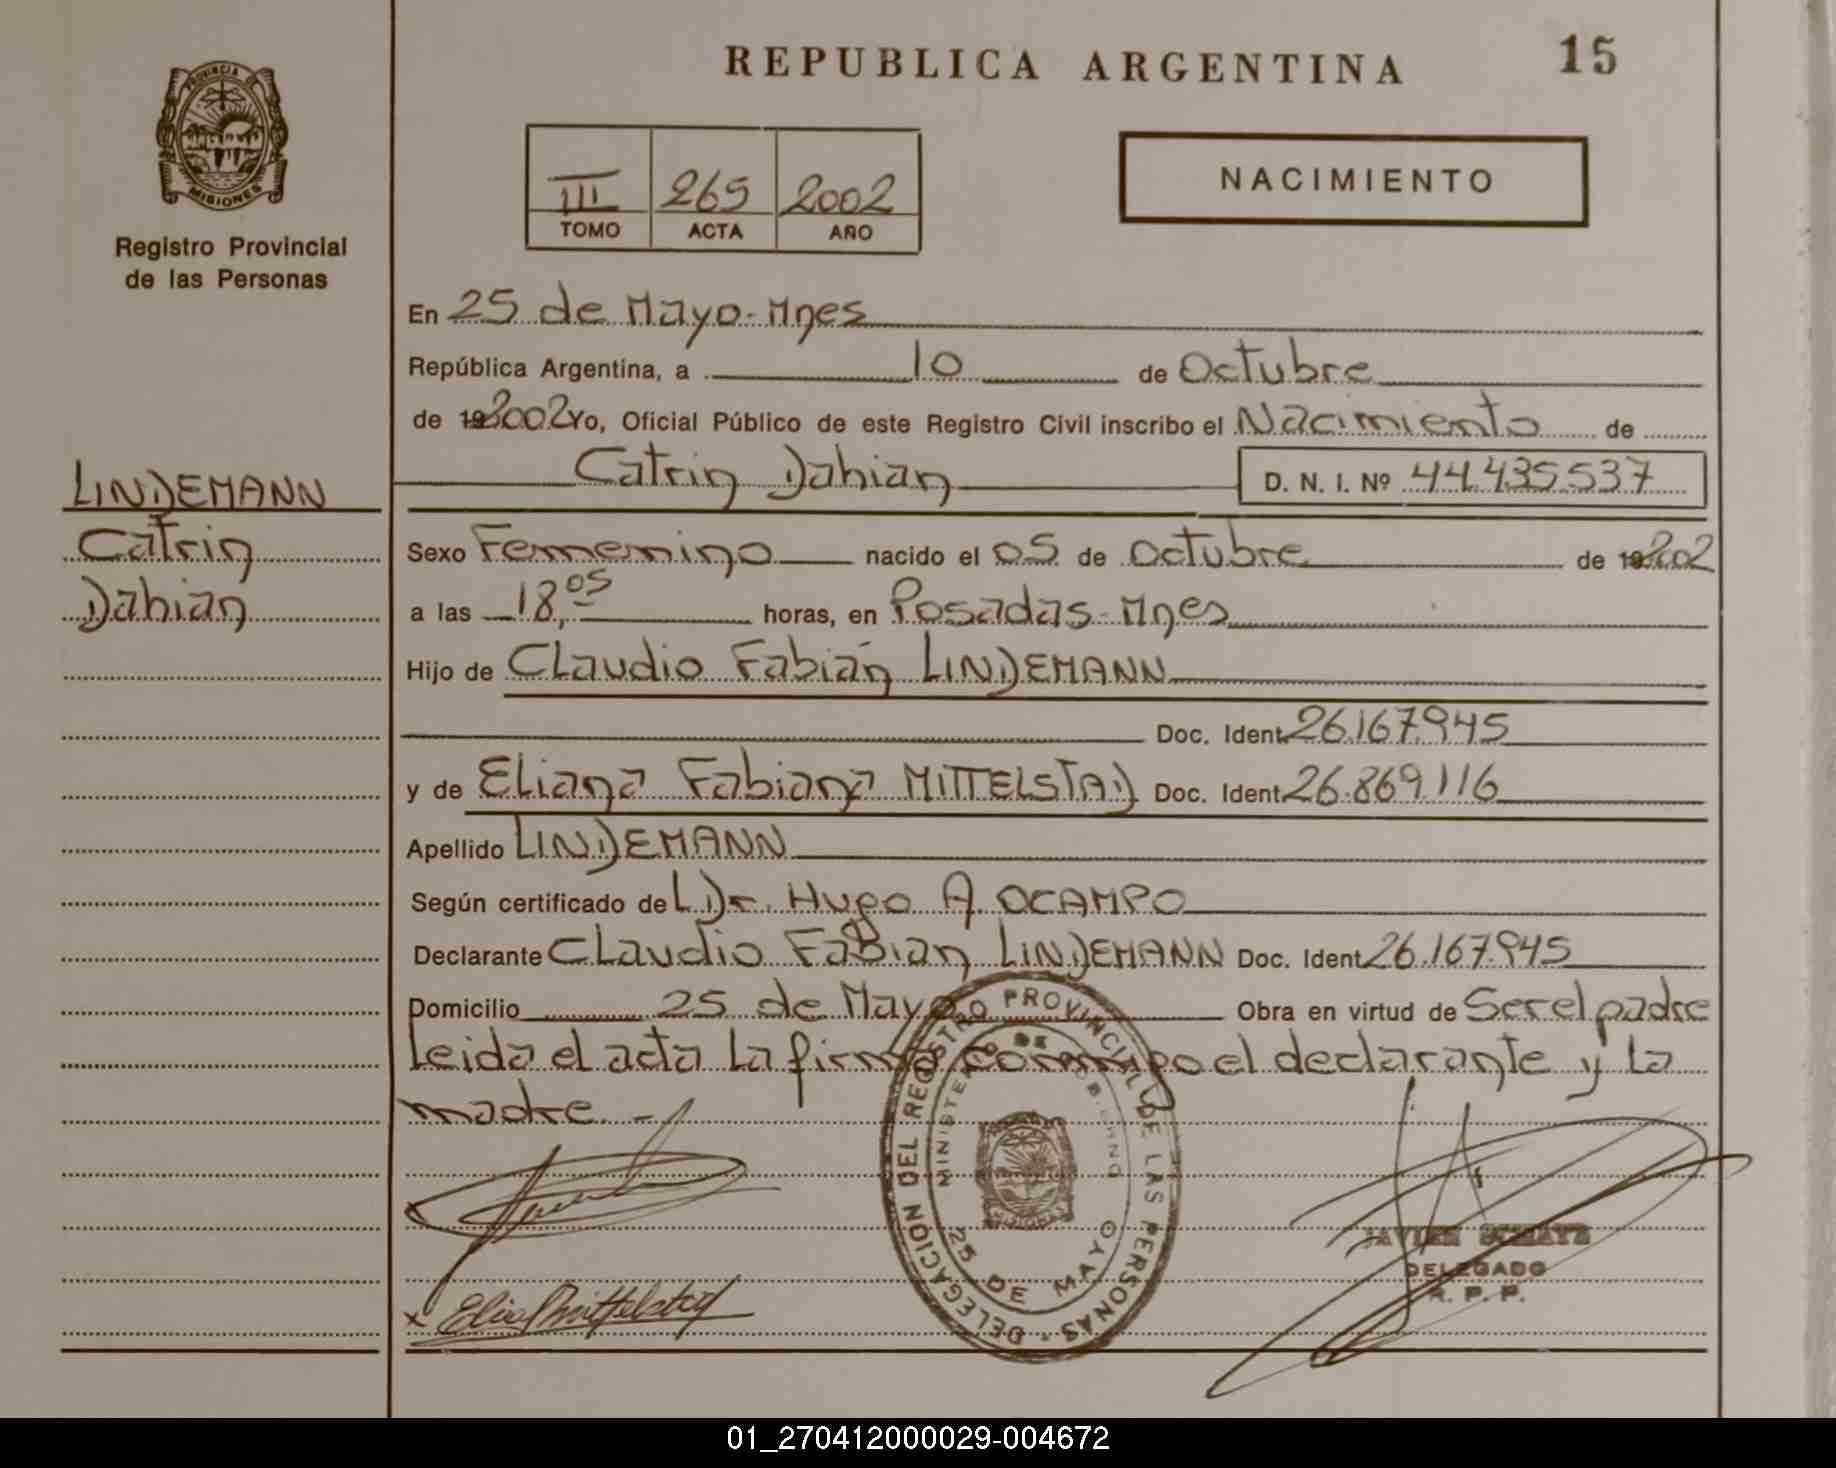 REPUBLICA ARGENTINA
15
PROVINCIA DE
MISIONES
Registro Provincial
de las Personas
III 265 2002
TOMO ACTA AÑO
NACIMIENTO
En 25 de Mayo-Mnes
República Argentina, a 10 de Octubre
de 192002 Yo, Oficial Público de este Registro Civil inscribo el Nacimiento de
Catrin Dahian D. N. I. Nº 44.435.537
LINDEMANN
Catrin
Dahian
Sexo Femenino nacido el 05 de Octubre de 192002
a las 18,05 horas, en Posadas-Mnes
Hijo de Claudio Fabián LINDEMANN
Doc. Ident 26.167.945
y de Eliana Fabiana MITTELSTAD Doc. Ident 26.869.116
Apellido LINDEMANN
Según certificado del Dr. Hugo A. OCAMPO
Declarante Claudio Fabian LINDEMANN Doc. Ident 26.167.945
Domicilio 25 de Mayo Obra en virtud de Ser el padre
Leida el acta La firma conmigo el declarante y La
madre.-
DELEGACION DEL REGISTRO PROVINCIAL DE LAS PERSONAS
MINISTERIO DE GOBIERNO
MISIONES
25 DE MAYO
JAVIER
DELEGADO
R. P. P.
x
01_270412000029-004672